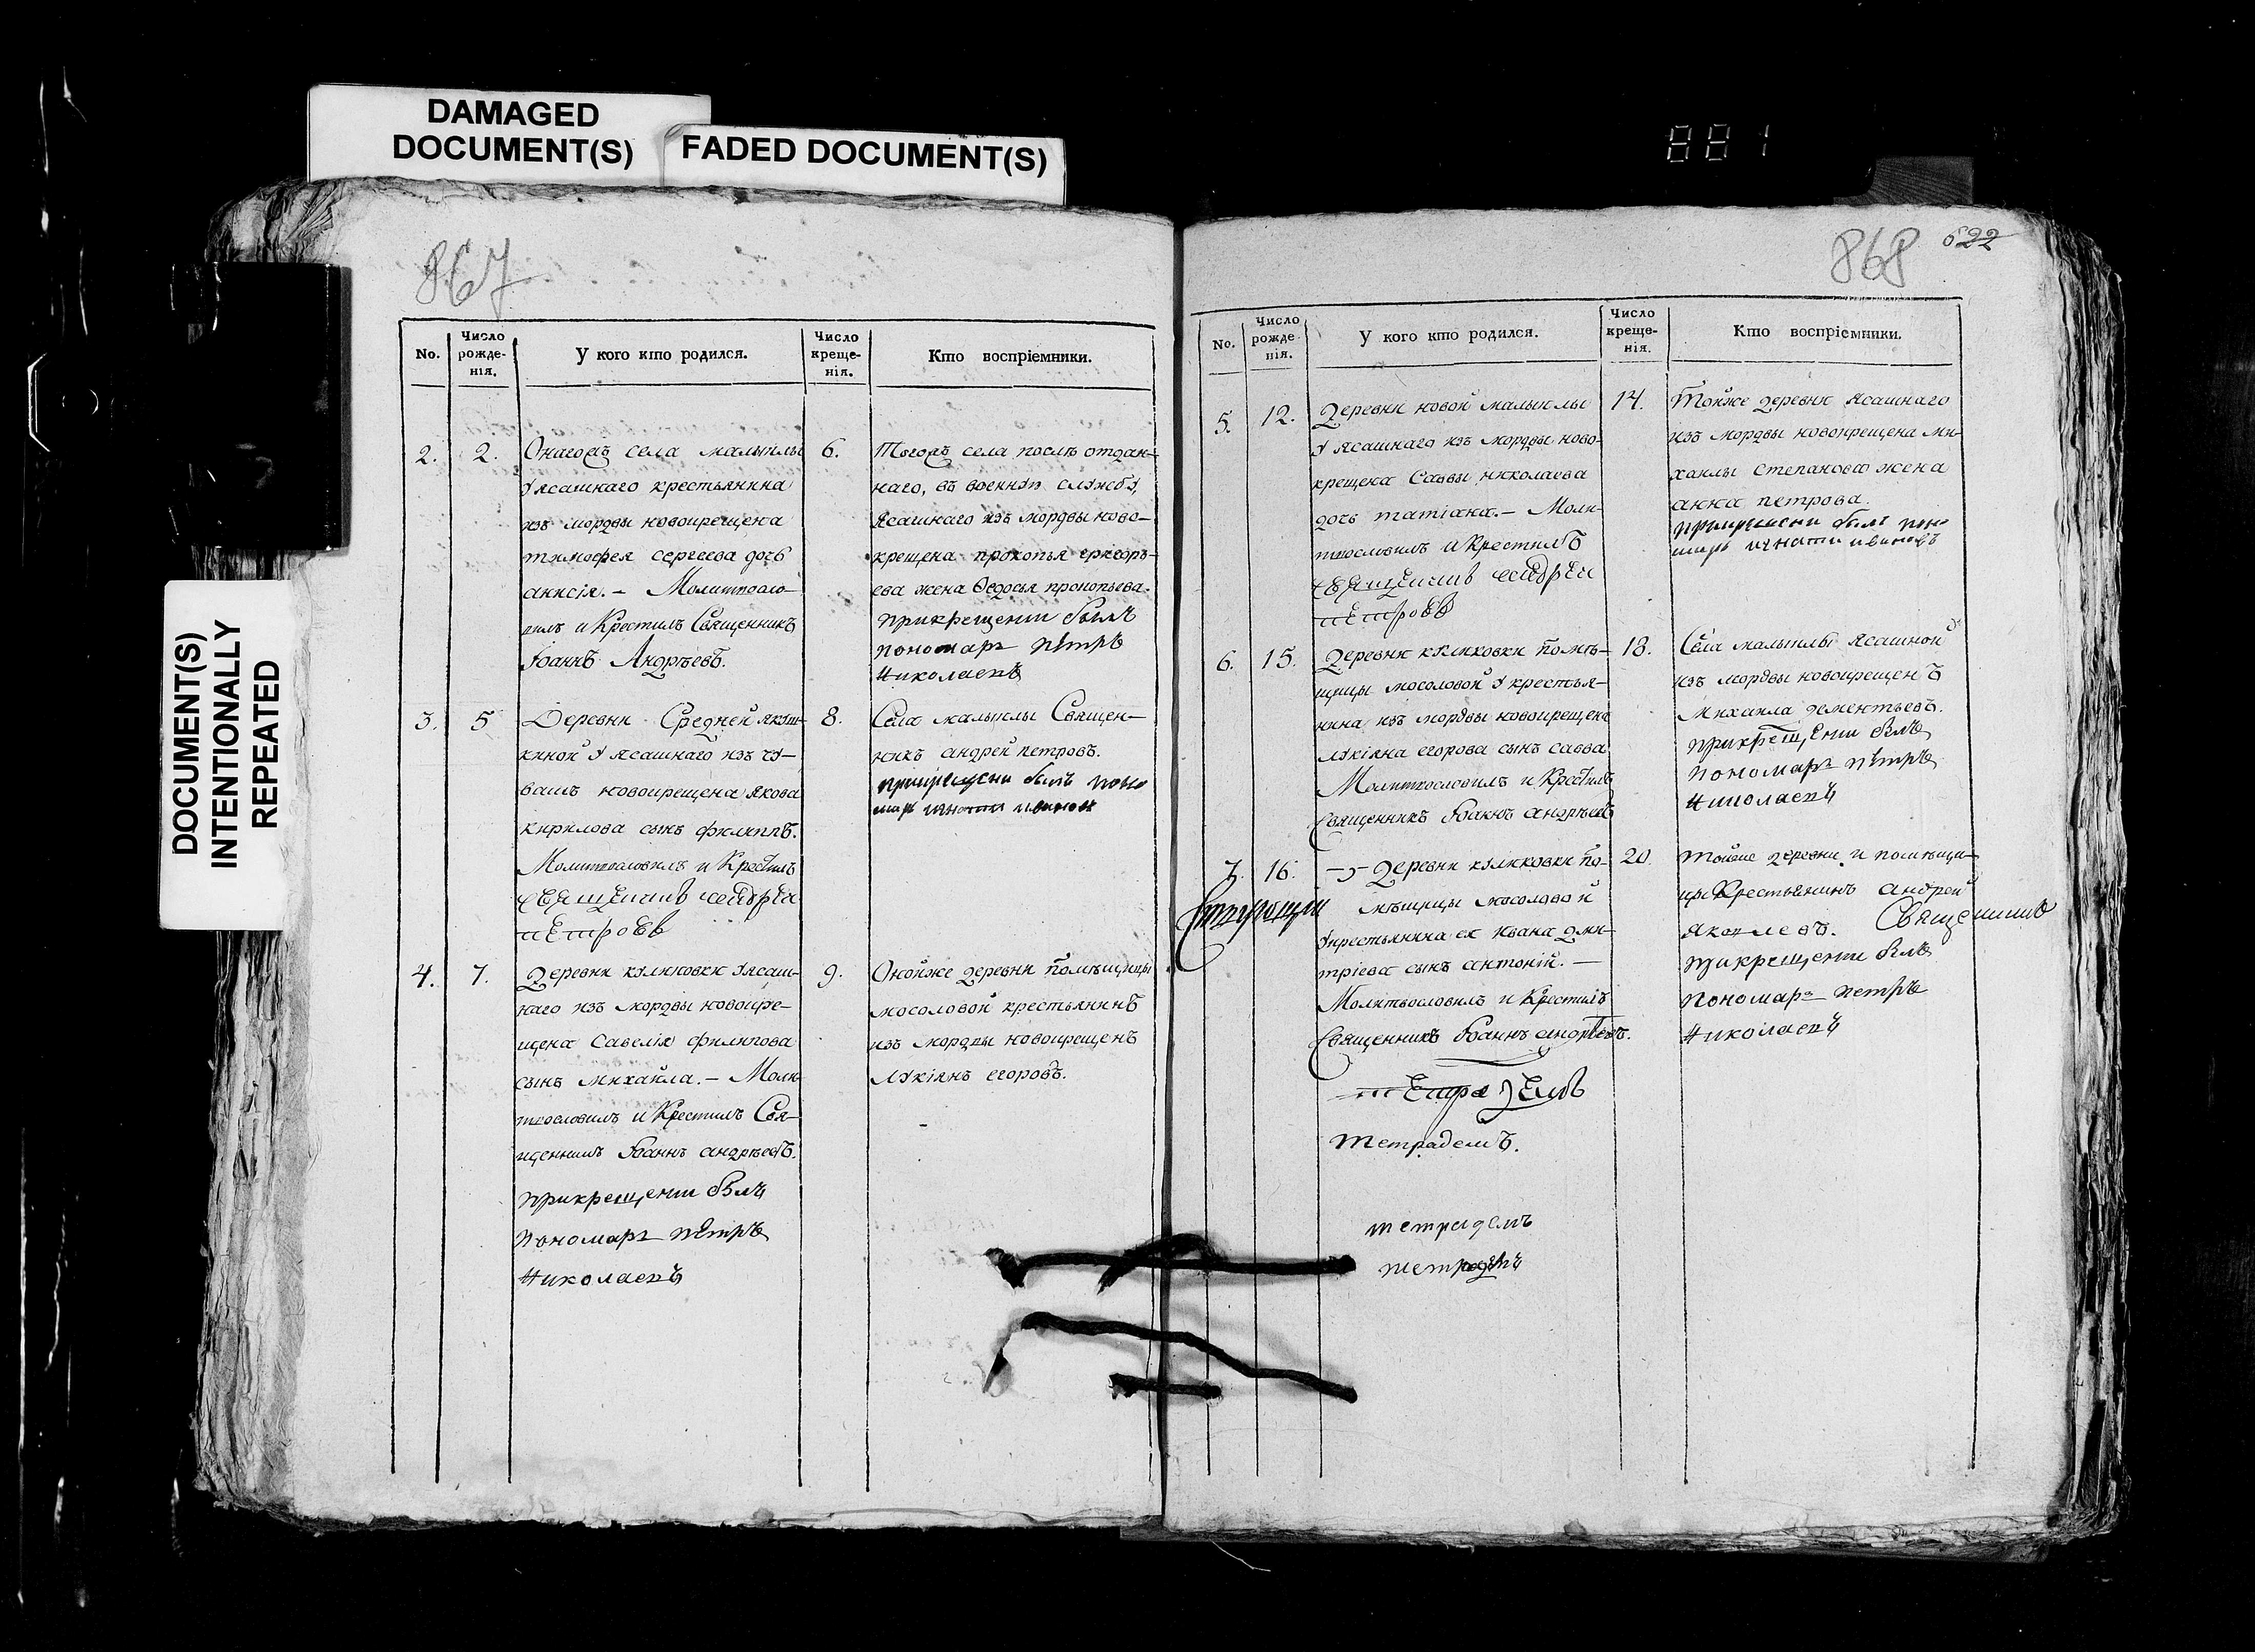 DAMAGED
DOCUMENT(S)
FADED DOCUMENT(S)
881
DOCUMENT(S)
INTENTIONALLY
REPEATED
867
No.
Число
рожде-
нія.
У кого кто родился.
Число
креще-
нія.
Кто воспріемники.
2.
2.
Онагожъ села малыклы
У ясашнаго крестьянина
изъ мордвы новокрещена
тимофея сергеева дочь
анисія. – Молитвосло-
вилъ и Крестилъ Священникъ
Іоаннъ Андрѣевъ.
6.
Тогожъ села послѣ отдан-
наго, въ военную службу,
Ясашнаго изъ мордвы ново-
крещена прокопья григорь-
ева жена Ѳедосья прокопьева.
прикрещении былъ
пономарь петръ
николаевъ
3.
5
Деревни Средней якуш-
киной У ясашнаго изъ чу-
вашъ новокрещена якова
кирилова сынъ филиппъ.
Молитвословилъ и Крестилъ
священникъ андрей
петровъ
8.
Села малыклы Священ-
никъ андрей петровъ.
прикрещении былъ поно
марь игнати иванов
4.
7.
Деревни куликовки У ясаш-
наго изъ мордвы новокре-
щена Савелія филипова
сынъ михайла. – Моли-
твословилъ и Крестилъ Свя-
щенникъ Іоаннъ андрѣевъ.
прикрещении былъ
пономарь петръ
николаевъ
9.
Онойже деревни помѣщицы
мосоловой крестьянинъ
изъ мордвы новокрещенъ
лукіянъ егоровъ.
868
622
No.
Число
рожде
нія.
У кого кто родился.
Число
креще-
нія.
Кто воспріемники.
5.
12.
Деревни новой малыклы
У ясашнаго изъ мордвы ново-
крещена Саввы николаева
дочь татіана. – Моли-
твословилъ и Крестилъ
священникъ андрей
петровъ
14.
Тойже деревни ясашнаго
изъ мордвы новокрещена ми-
хайлы степанова жена
анна петрова.
прикрещении былъ поно
марь игнати ивановъ
6.
15.
Деревни куликовки помѣ-
щицы мосоловой У крестья-
нина изъ мордвы новокрещена
лукіяна егорова сынъ савва
Молитвословилъ и Крестилъ
Священникъ Іоаннъ андрѣевъ
18.
Села малыклы ясашной
изъ мордвы новокрещенъ
Михайла дементьевъ.
прикрещении былъ
пономарь петръ
николаевъ
7.
16.
Деревни куликовки по-
мѣщицы мосоловой
У крестьянина ея ивана дми-
тріева сынъ антоній. –
Молитвословилъ и Крестилъ
Священникъ Іоаннъ андрѣевъ.
20.
тойже деревни и помѣщи-
цы Крестьянинъ андрей
яковлевъ. Священникъ
прикрещении былъ
пономарь петръ
николаевъ
тетрадемъ.
тетрадемъ